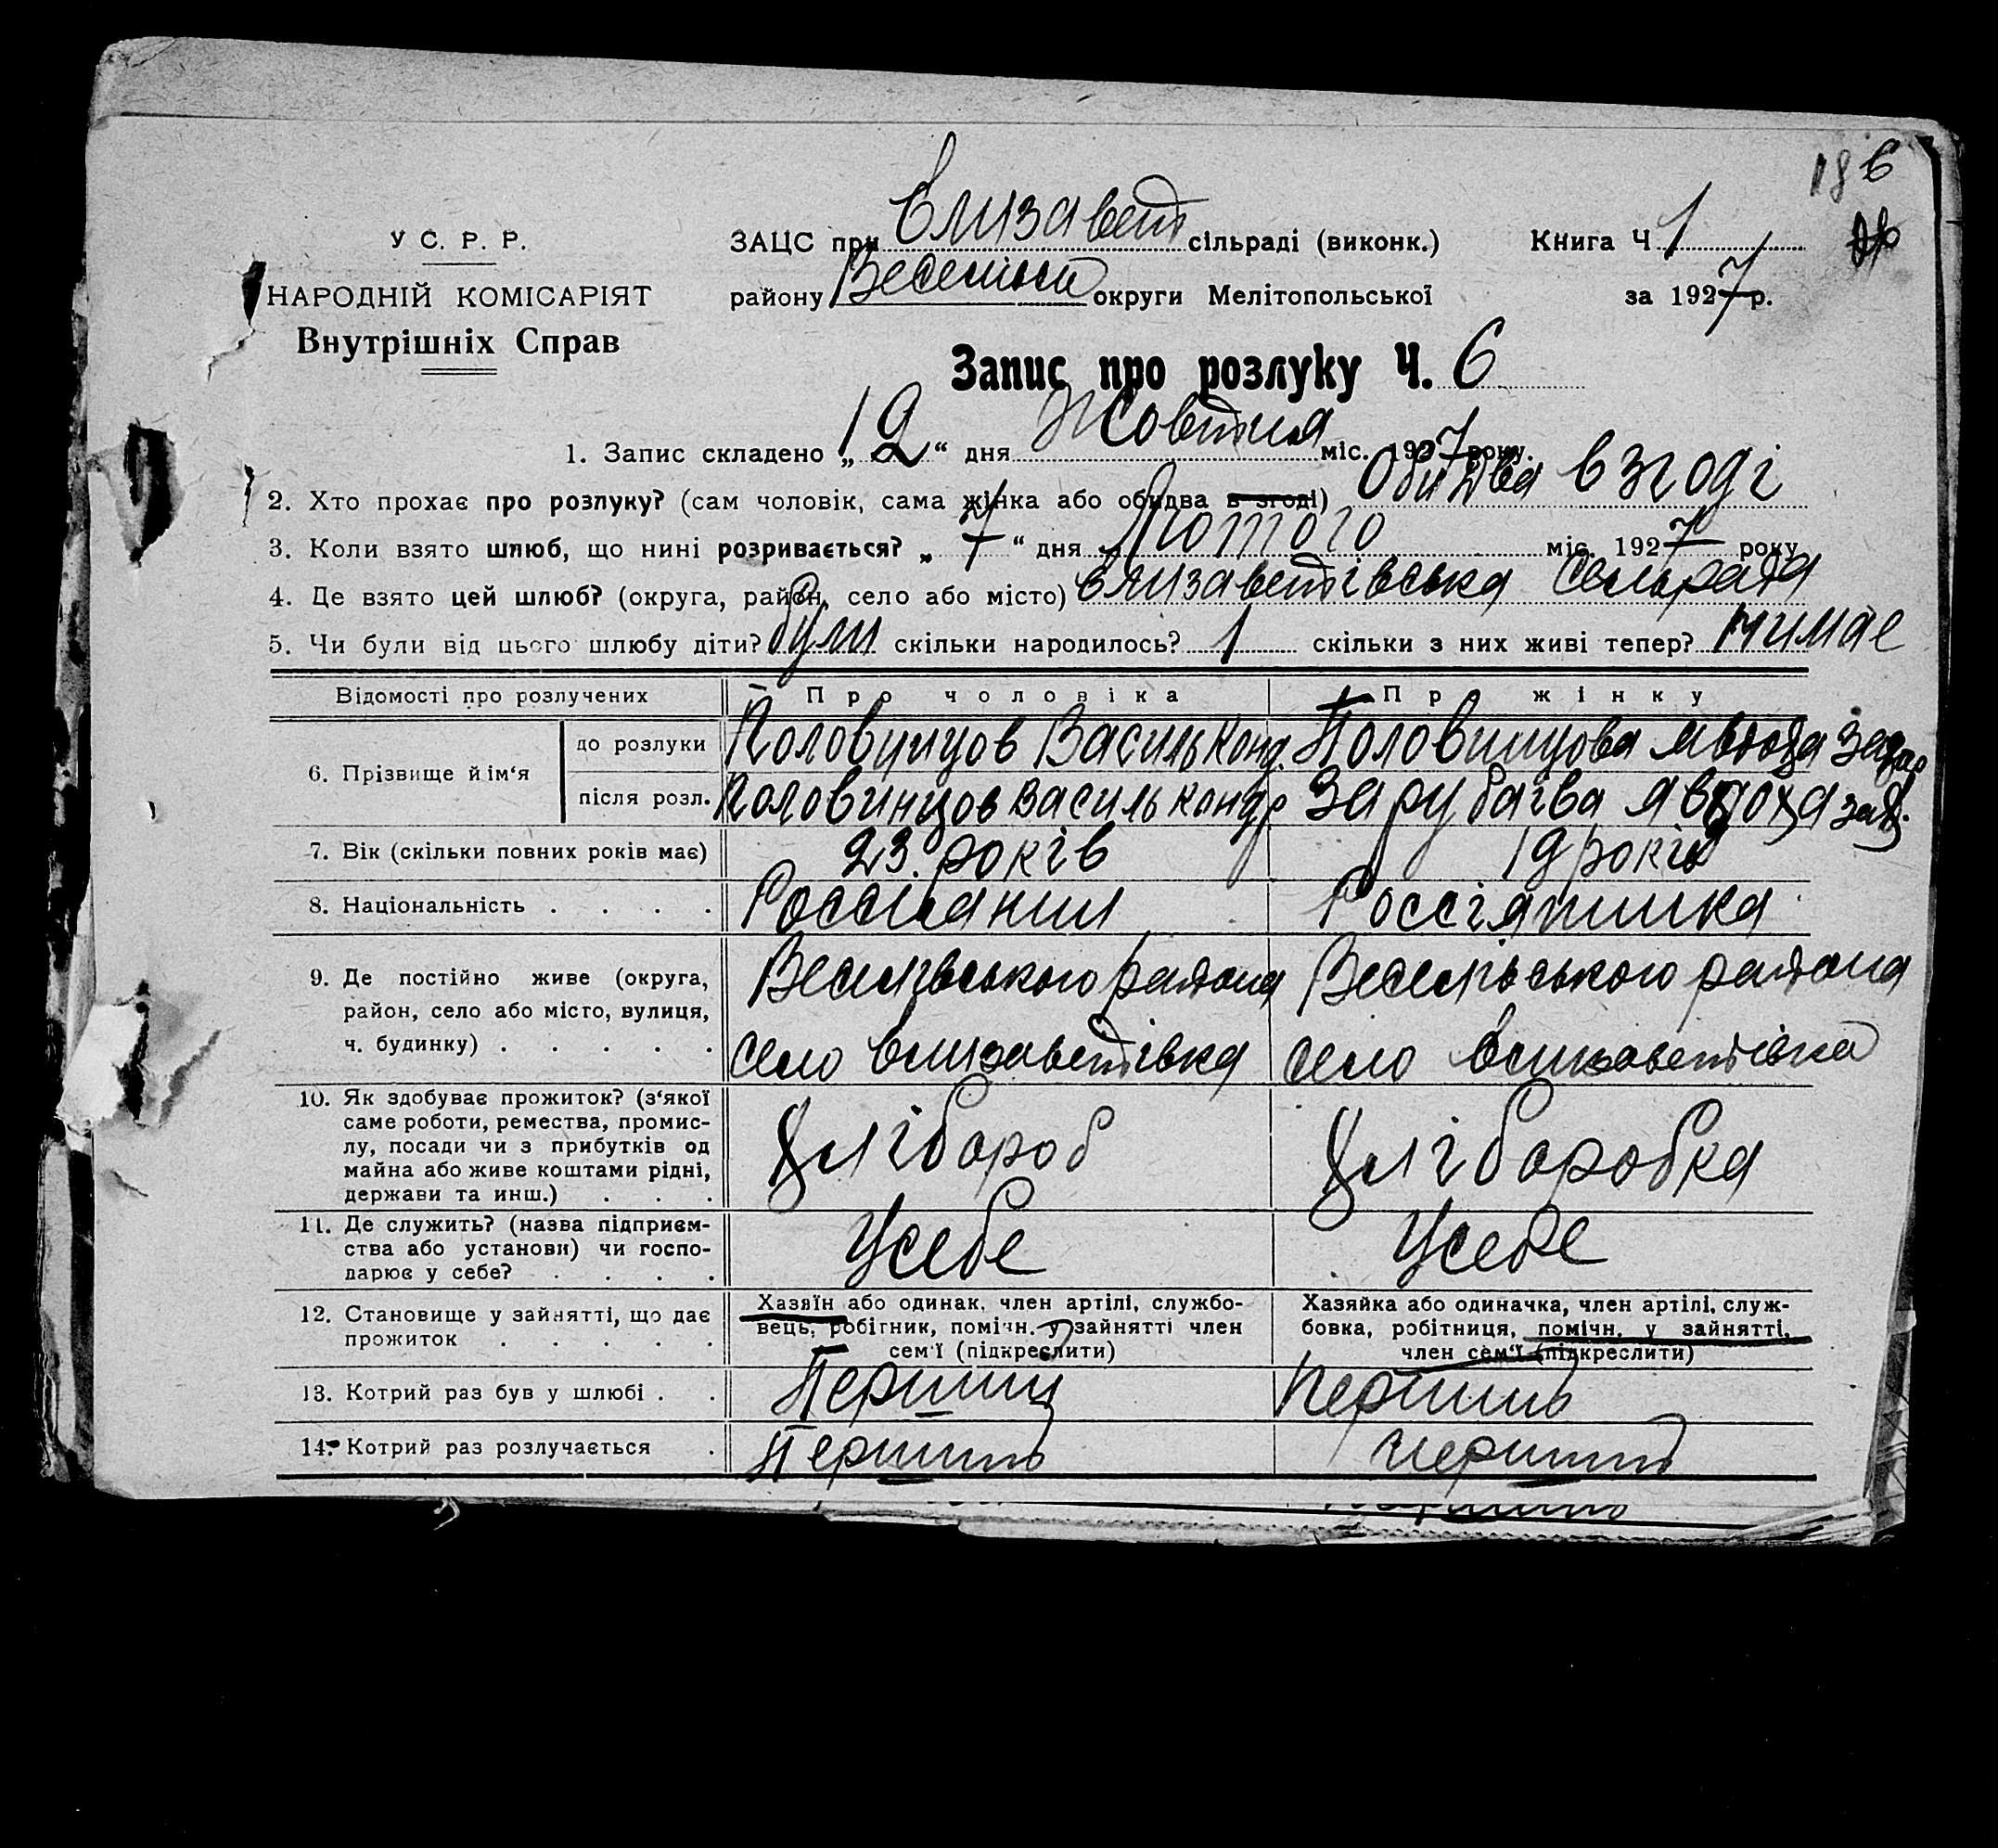 186
У С. Р. Р.
НАРОДНІЙ КОМІСАРІЯТ
Внутрішніх Справ
ЗАЦС при Єлизавет сільраді (виконк.) Книга Ч 1
району округи Мелітопольської за 1927 р.
Запис про розлуку Ч. 6
1. Запис складено „12“ дня Жовтня міс. 1927 року.
2. Хто прохає про розлуку? (сам чоловік, сама жінка або обидва в згоді) Обидва в згоді
3. Коли взято шлюб, що нині розривається? „7“ дня Лютого міс. 1927 року
4. Де взято цей шлюб? (округа, район, село або місто) Єлизаветівська Сельрада
5. Чи були від цього шлюбу діти? були скільки народилось? 1 скільки з них живі тепер? нимае
Відомості про розлучених Про чоловіка Пр жінку
6. Прізвище й ім‘я
до розлуки Половинцов Василь Конд. Половинцова Явдоха Захар
після розл. Половинцов Василь Кондр Зарубаєва Явдоха Зах.
7. Вік (скільки повних років має) 23 років 19 років
8. Національність . . . . Россіянин Россіянинка
9. Де постійно живе (округа, район, село або місто, вулиця, ч. будинку) . . . . .
Веселівського района Веселівського района
село Єлизаветівка село Єлизаветівка
10. Як здобуває прожиток? (з‘якої
саме роботи, ремества, промис-
лу, посади чи з прибутків од
майна або живе коштами рідні,
держави та инш.) . . .
Хлібороб Хліборобка
11. Де служить? (назва підприєм-
ства або установи) чи госпо-
дарює у себе? . . . .
Усебе Усебе
12. Становище у зайнятті, що дає
прожиток . . . . .
Хазяїн або одинак, член артілі, службо-
вець, робігник, помічн. у зайнятті член
сем‘ї (підкреслити)
Хазяйка або одиначка, член артілі, служ-
бовка, робітниця, помічн. у зайнятті,
член сем‘ї (підкреслити)
13. Котрий раз був у шлюбі . . Перший Перший
14. Котрий раз розлучається . Перший Перший